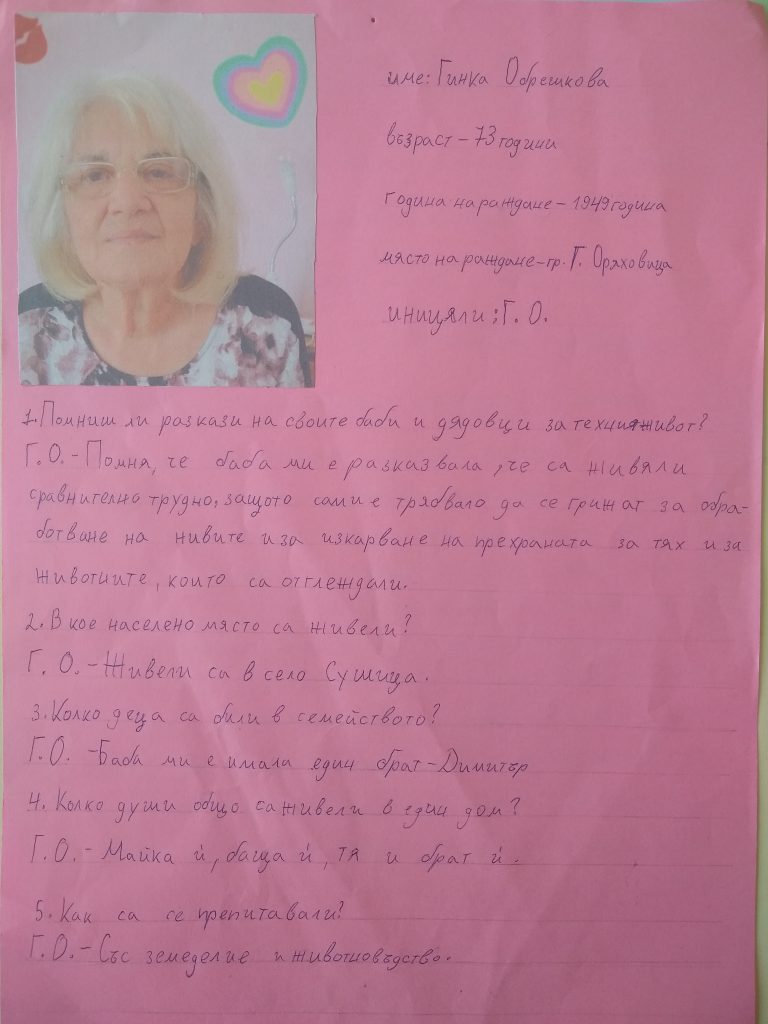 име: Гинка Обрешкова
възраст – 73 години
година на раждане – 1949 година
място на раждане – гр. Г. Оряховица
инициали: Г. О.
1. Помниш ли разкази на своите баби и дядовци за техния живот?
Г. О. - Помня, че баба ми е разказвала, че са живяли
сравнително трудно, защото сами е трябвало да се грижат за обра-
ботване на нивите и за изкарване на прехраната за тях и за
животните, които са отглеждали.
2. В кое населено място са живели?
Г. О. - Живели са в село Сушица.
3. Колко деца са били в семейството?
Г. О. - Баба ми е имала един брат - Димитър
4. Колко души общо са живели в един дом?
Г. О. - Майка ѝ, баща ѝ, тя и брат ѝ.
5. Как са се препитавали?
Г. О. - Със земеделие и животновъдство.